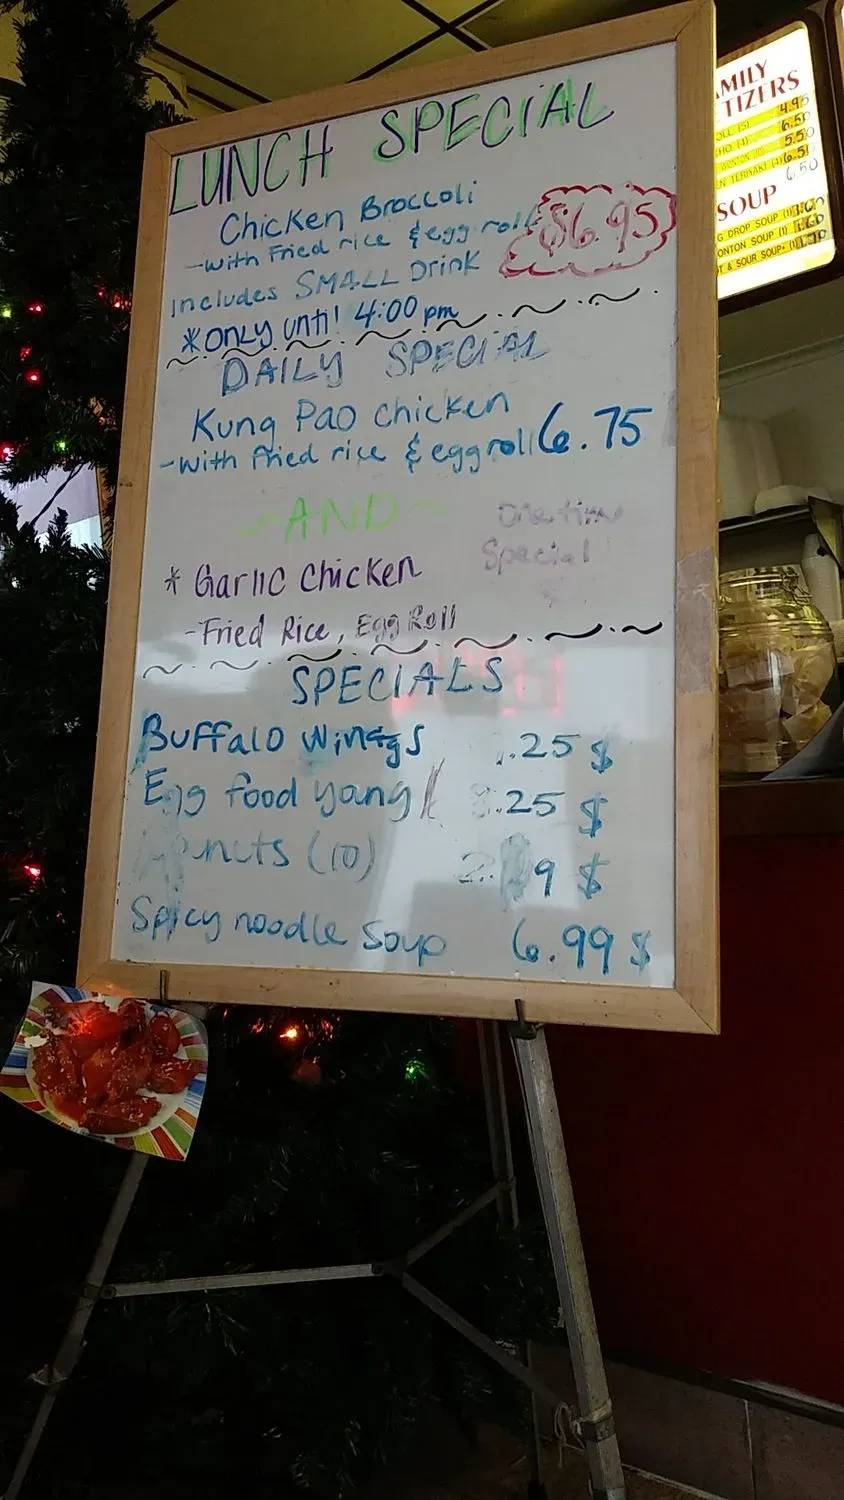 LUNCH SPECIAL
Chicken Broccoli
-with Fried rice & egg roll $6.95
includes SMALL Drink
*only until 4:00 pm
DAILY SPECIAL
Kung Pao chicken
-with fried rice & eggroll 6.75
~AND~ One time
Special
* Garlic Chicken
-Fried Rice, Egg Roll
SPECIALS
Buffalo wings .25 $
Egg food yang .25 $
nuts (10) 9 $
Spicy noodle Soup 6.99 $
MILY
TIZERS
4.95
6.50
5.50
TERIYAKI (4) 6.51
6.50
SOUP
DROP SOUP (1)
ONTON SOUP (1)
T & SOUR SOUP